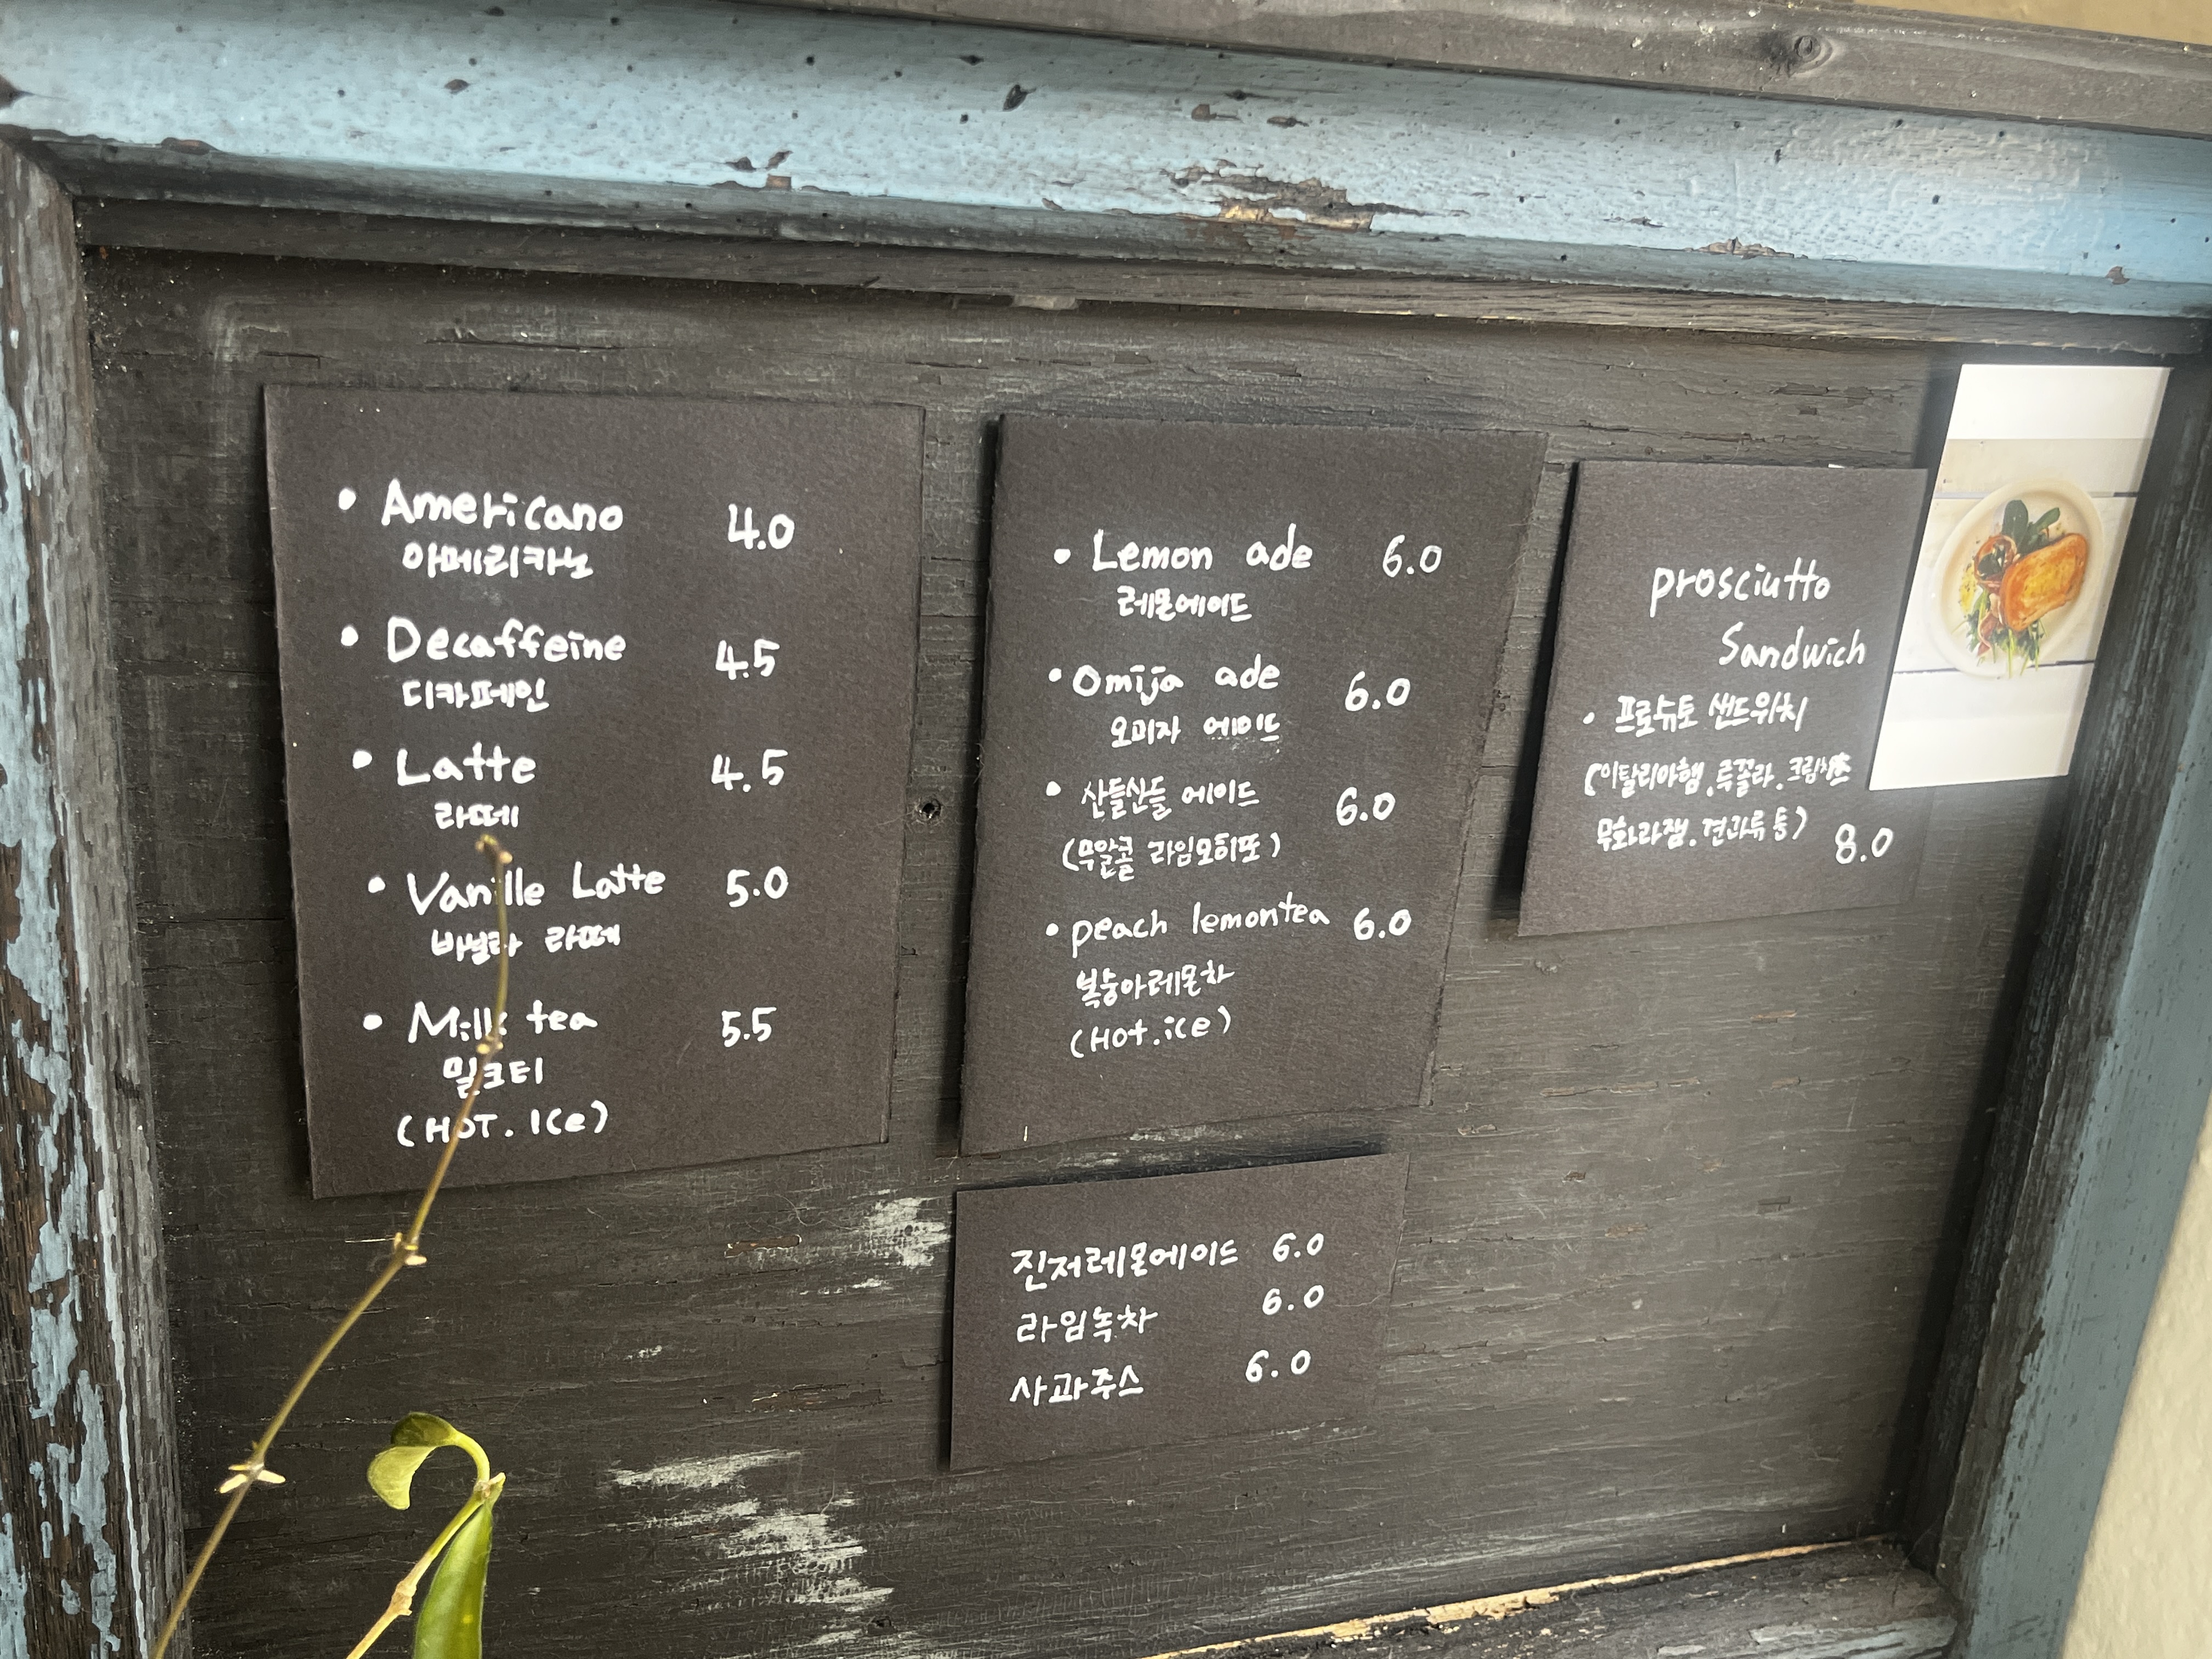 • Americano 4.0
아메리카노
• Decaffeine 4.5
디카페인
• Latte 4.5
라떼
• Vanille Latte 5.0
바닐라 라떼
• Milk tea 5.5
밀크티
(HOT. ICe)
• Lemon ade 6.0
레몬에이드
• Omija ade 6.0
오미자 에이드
• 산들산들 에이드 6.0
(무알콜 라임모히또)
• peach lemontea 6.0
복숭아레몬차
(HOt.ice)
진저레몬에이드 6.0
라임녹차 6.0
사과주스 6.0
prosciutto
Sandwich
• 프로슈토 샌드위치
(이탈리아햄.루꼴라.크림치즈
무화과잼.견과류 등) 8.0